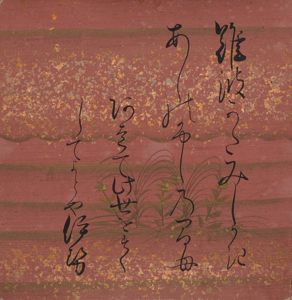 難波かたみしかき
あしのふしの間も
阿はて此世をすく
してよとや伊勢